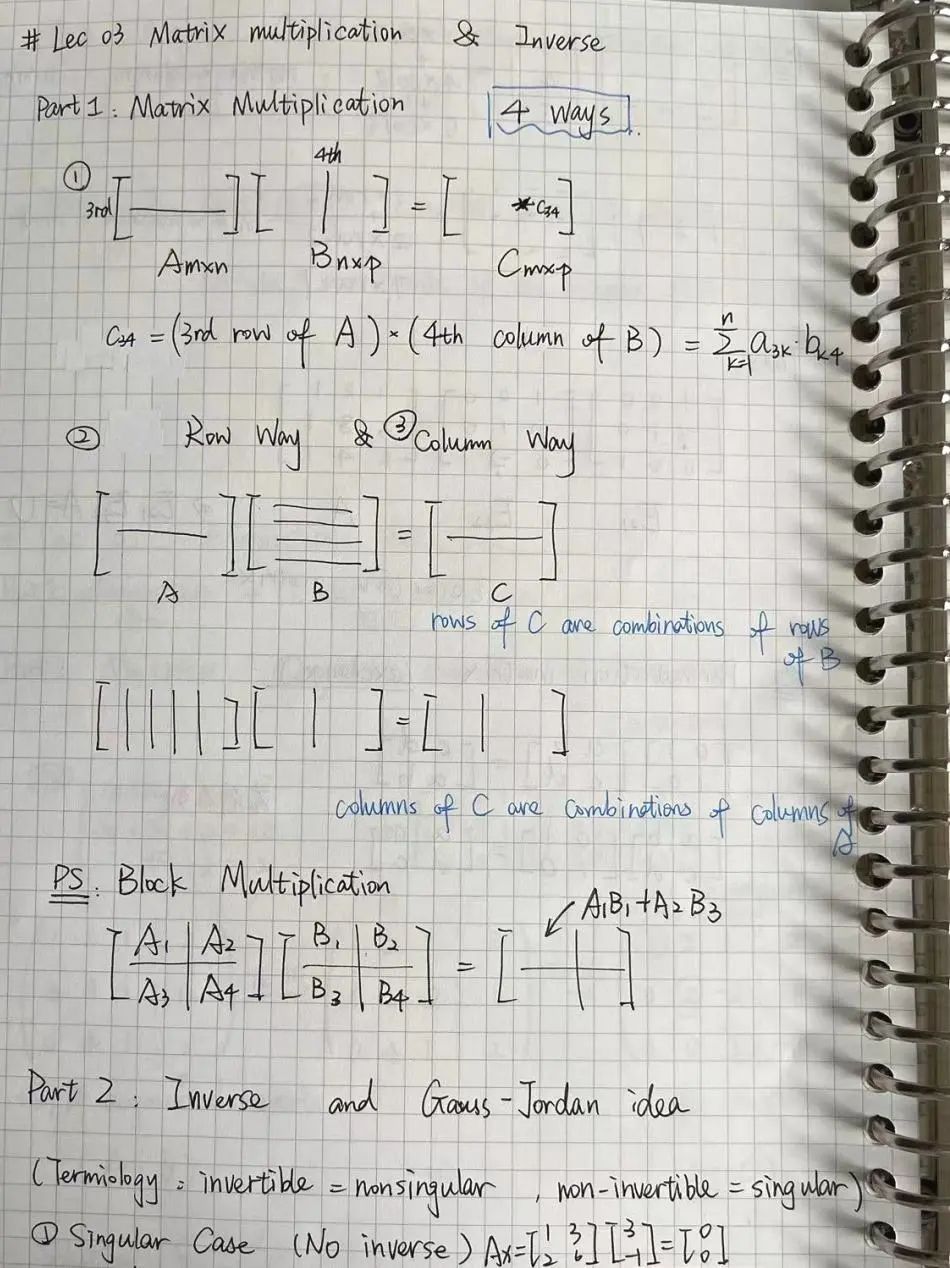 # Lec 03 Matrix multiplication & Inverse
Part 1: Matrix Multiplication 4 Ways.
① 3rd [—] [ 4th | ] = [ * C₃₄ ]
Amxn Bnxp Cmxp
C₃₄ = (3rd row of A) × (4th column of B) = Σₖ₌₁ⁿ a₃ₖ·bₖ₄
② Row Way & ③ Column Way
A B C
rows of C are combinations of rows
of B
columns of C are combinations of columns of
A
PS: Block Multiplication
A₁B₁+A₂B₃
[A₁ A₂ [B₁ B₂ = [ ]
A₃ A₄] B₃ B₄]
Part 2: Inverse and Gauss-Jordan idea
(Termiology: invertible = nonsingular, non-invertible = singular)
① Singular Case (No inverse) Ax=[1 3; 2 6][3; -1]=[0; 0]